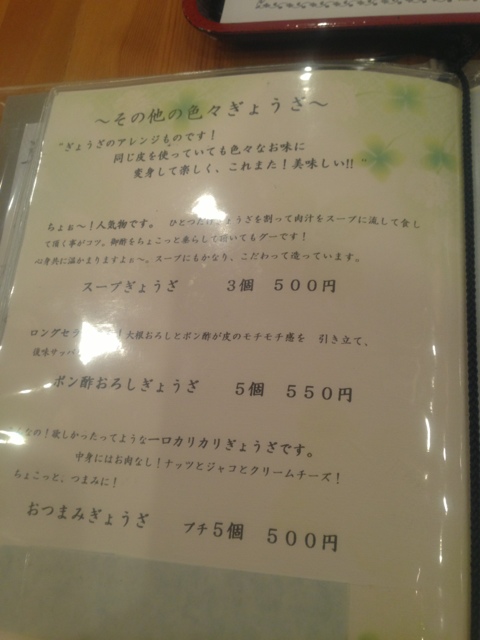 ～その他の色々ぎょうざ～
"ぎょうざのアレンジものです！
同じ皮を使っていても色々なお味に
変身して楽しく、これまた！美味しい!!"
ちょぉ～！人気物です。 ひとつだけ、ょうざを割って肉汁をスープに流して食し
て頂く事がコツ。御酢をちょこっと垂らして頂いてもグーです！
心身共に温かまりますよぉ～。スープにもかなり、こだわって造っています。
スープぎょうざ 3個 500円
ロングセラ ！大根おろしとポン酢が皮のモチモチ感を 引き立て、
後味サッパ
ポン酢おろしぎょうざ 5個 550円
なの！欲しかったってような一口カリカリぎょうざです。
中身にはお肉なし！ナッツとジャコとクリームチーズ！
ちょこっと、つまみに！
おつまみぎょうざ プチ5個 500円